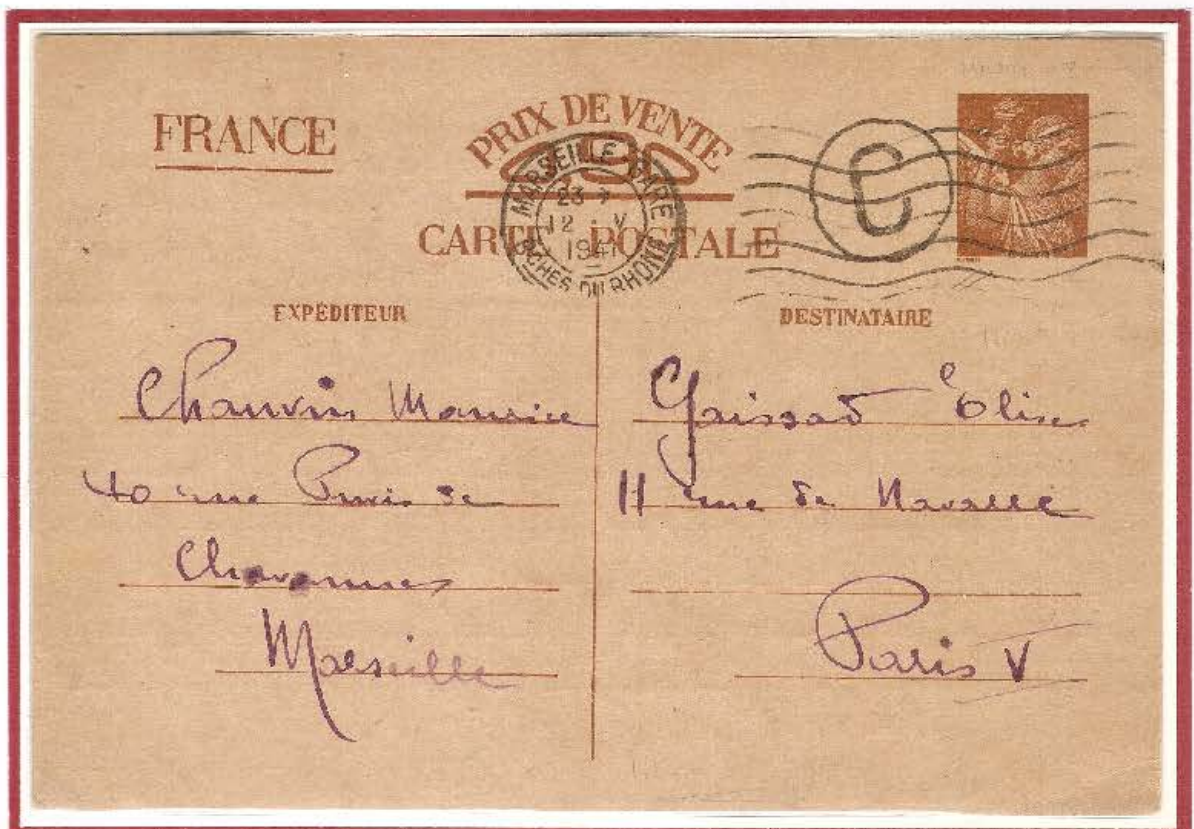 FRANCE
PRIX DE VENTE
0,90
CARTE POSTALE
MARSEILLE GARE
12 V
1941
BCHES DU RHONE
C
EXPÉDITEUR
Chauvin Maurice
40 rue Puvis de
Chavannes
Marseille
DESTINATAIRE
Gaissad Elise
11 rue de Navarre
Paris V